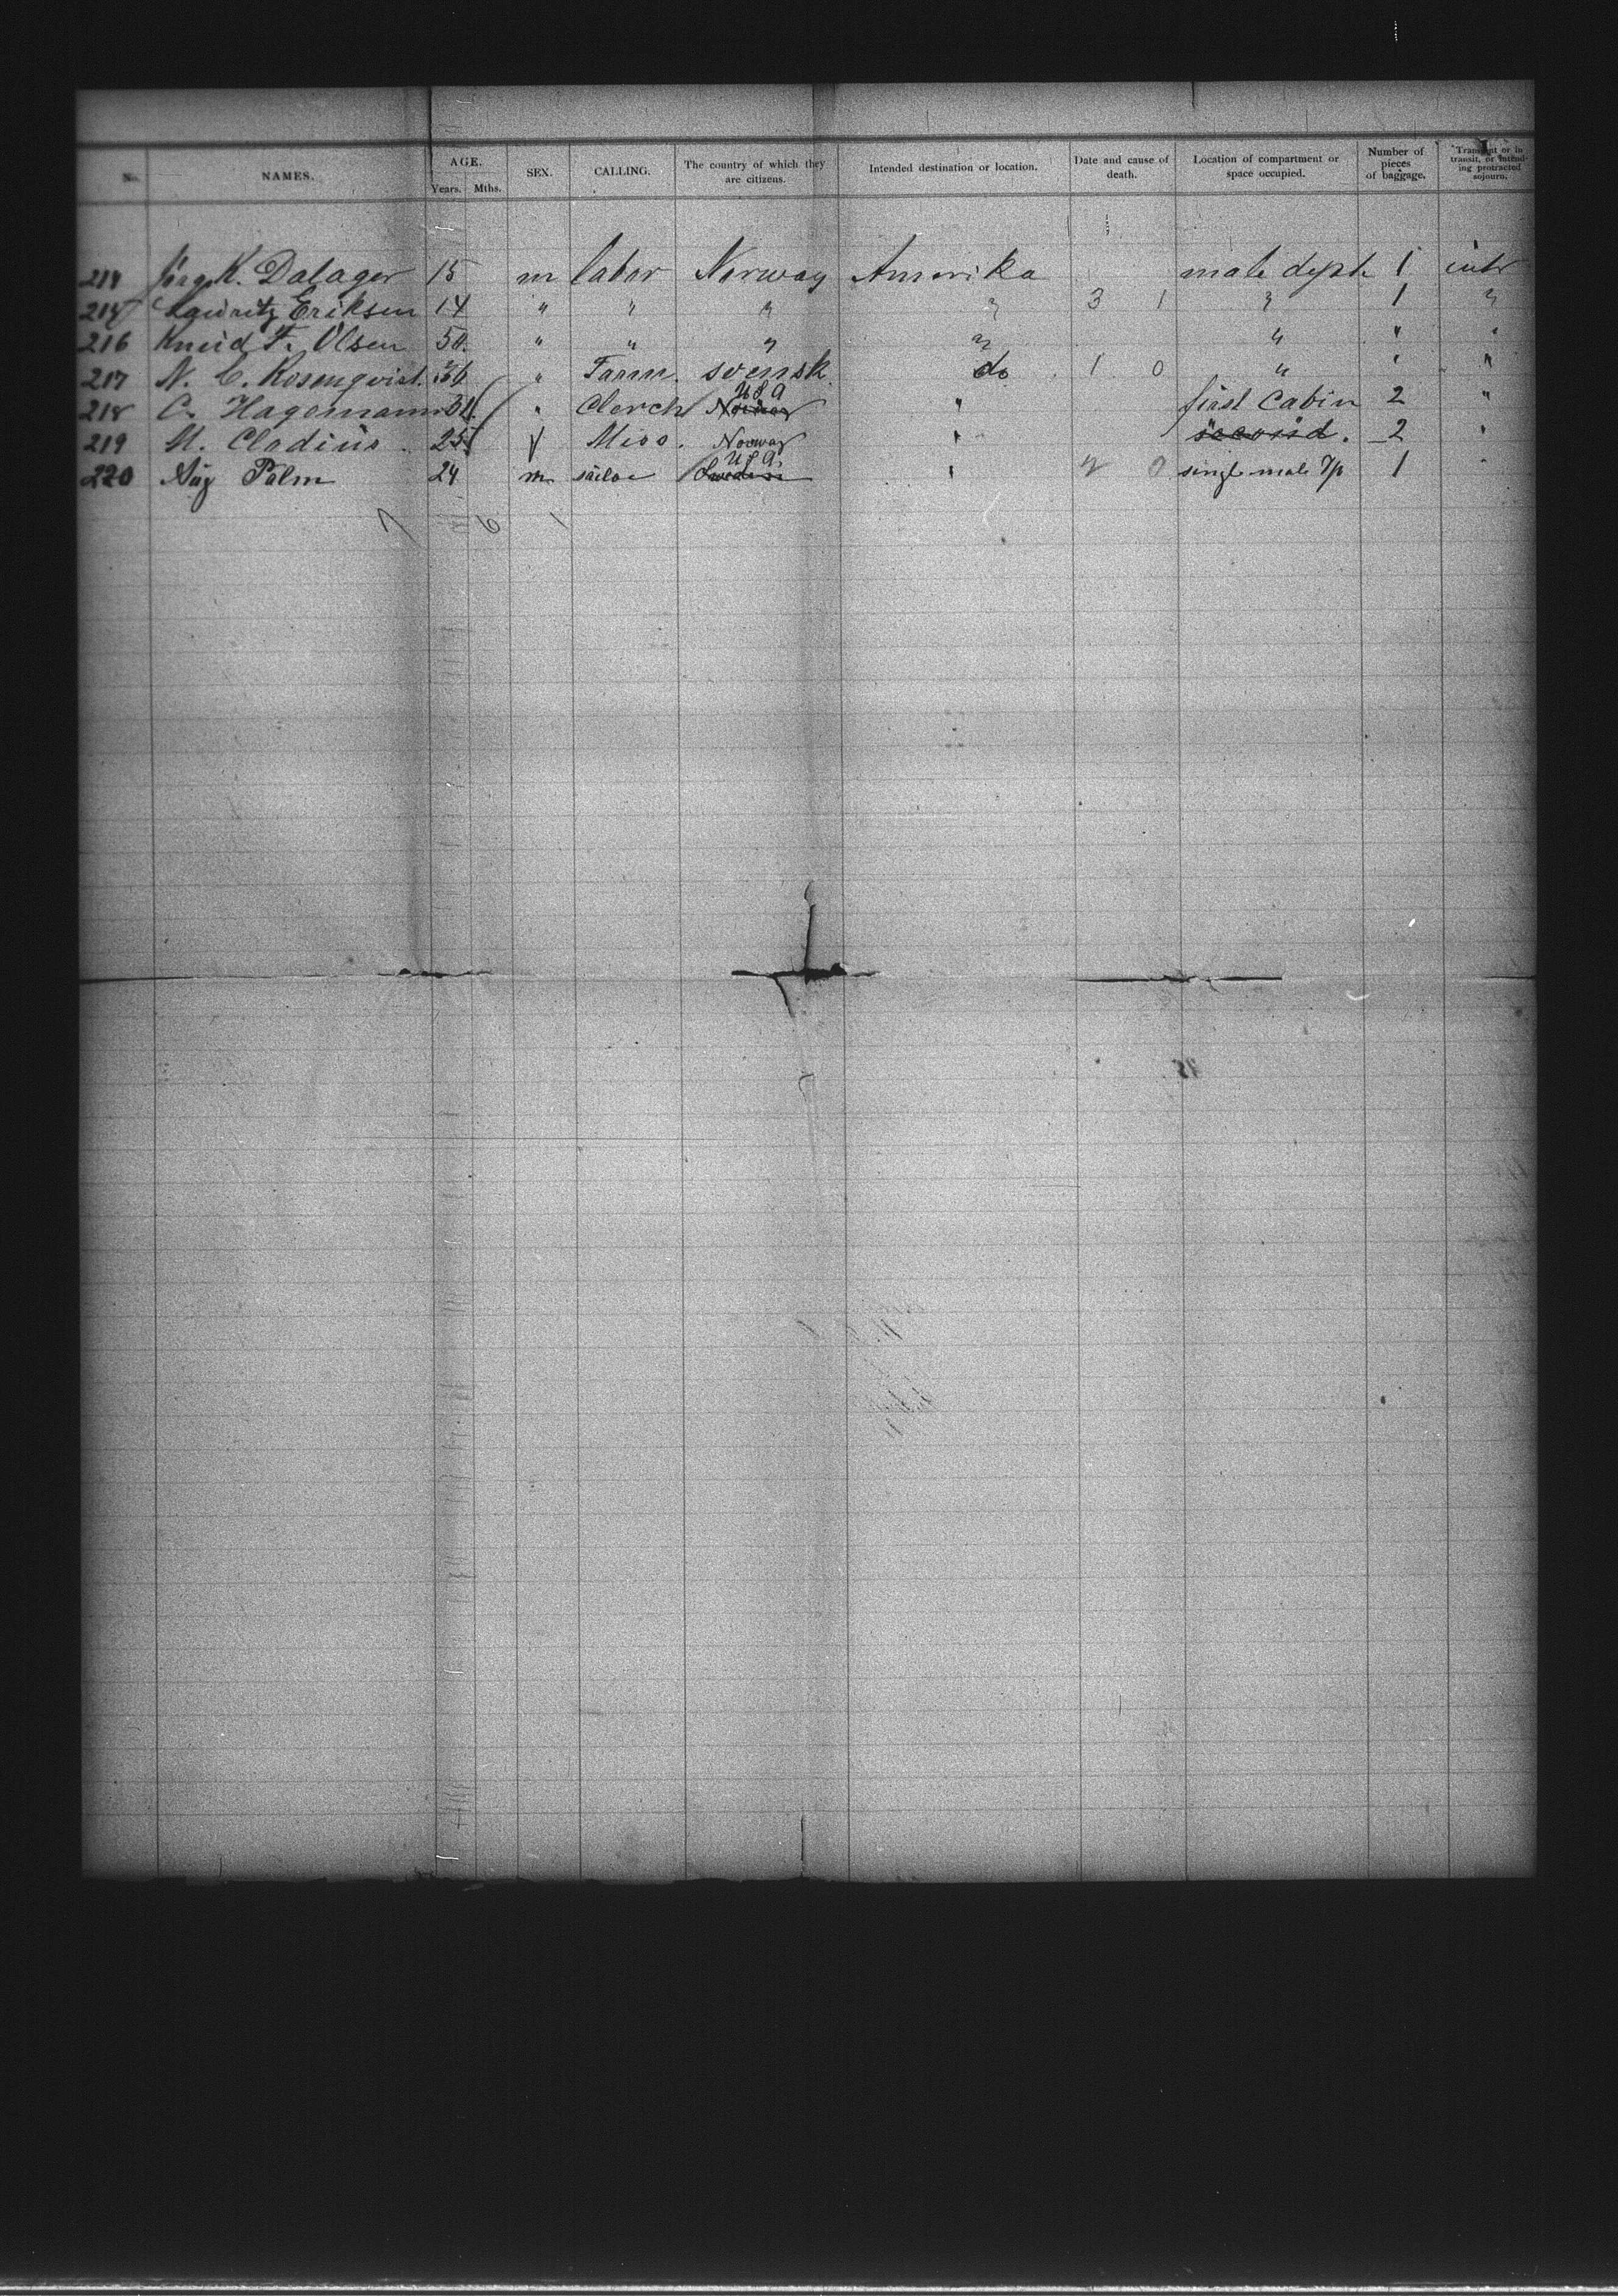 No. NAMES. AGE. Years. Mths. SEX. CALLING. The country of which they are citizens. Intended destination or location. Date and cause of death. Location of compartment or space occupied. Number of pieces of baggage. Transient or in transit, or intending protracted sojourn.
214 Jörg K. Dalager 15 m labor Norway Amerika male dept 1 intr
215 Lauritz Eriksen 14 " " " " 3 1 " 1 "
216 Knud F. Olsen 50 " " " " " " "
217 N. C. Rosenqvist. 36 " Farm. svensk do 1 0 " " "
218 C. Hagemann 31 " Clerch Norway U S A " first Cabin 2 "
219 M. Cladius 25 f Miss. Norway " second. 2 "
220 Aug Palm 24 m sailor Sweden U S A. " 2 0 singl male 1 "
7 6 1